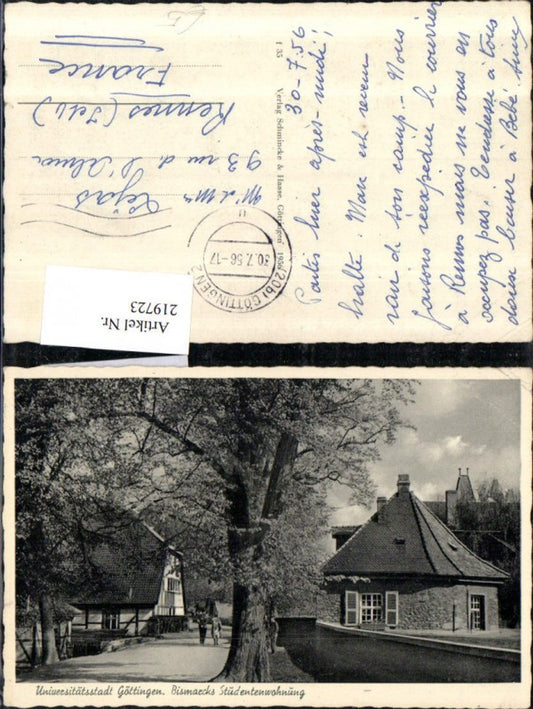 30-7.56
Partis hier après-midi;
halte. Marc est revenu
de son camp. - Nous
faisons réexpédier le courrier
à Rennes mais ne vous en
occupez pas. Tendresse à tous
doux baiser à Bébé
M. et Mme
Lejas
93 rue de l'Alma
Rennes (I et V)
France
t 35
Verlag Schmincke & Hasse, Göttingen
(20b) GÖTTINGEN 2
30.7.56-17
u
Artikel Nr.
219723
Universitätsstadt Göttingen. Bismarcks Studentenwohnung